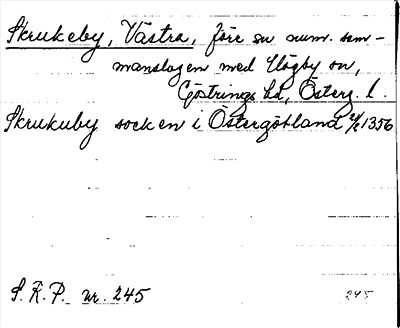 Skrukeby, Västra, förr sn num. sam-
manslagen med Högby sn,
Göstrings hd, Österg. l.
Skrukuby socken i Östergötland 2/2 1356
S.R.P. nr. 245
245